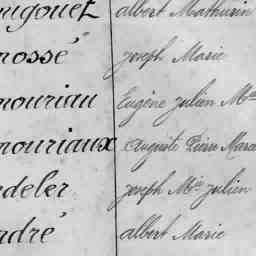 ugouet albert Mathurin
rossé joseph Marie
nouriau Eugène julien M
nouriaux Auguste Pierre Mar
deler joseph Mie julien
dré albert Marie